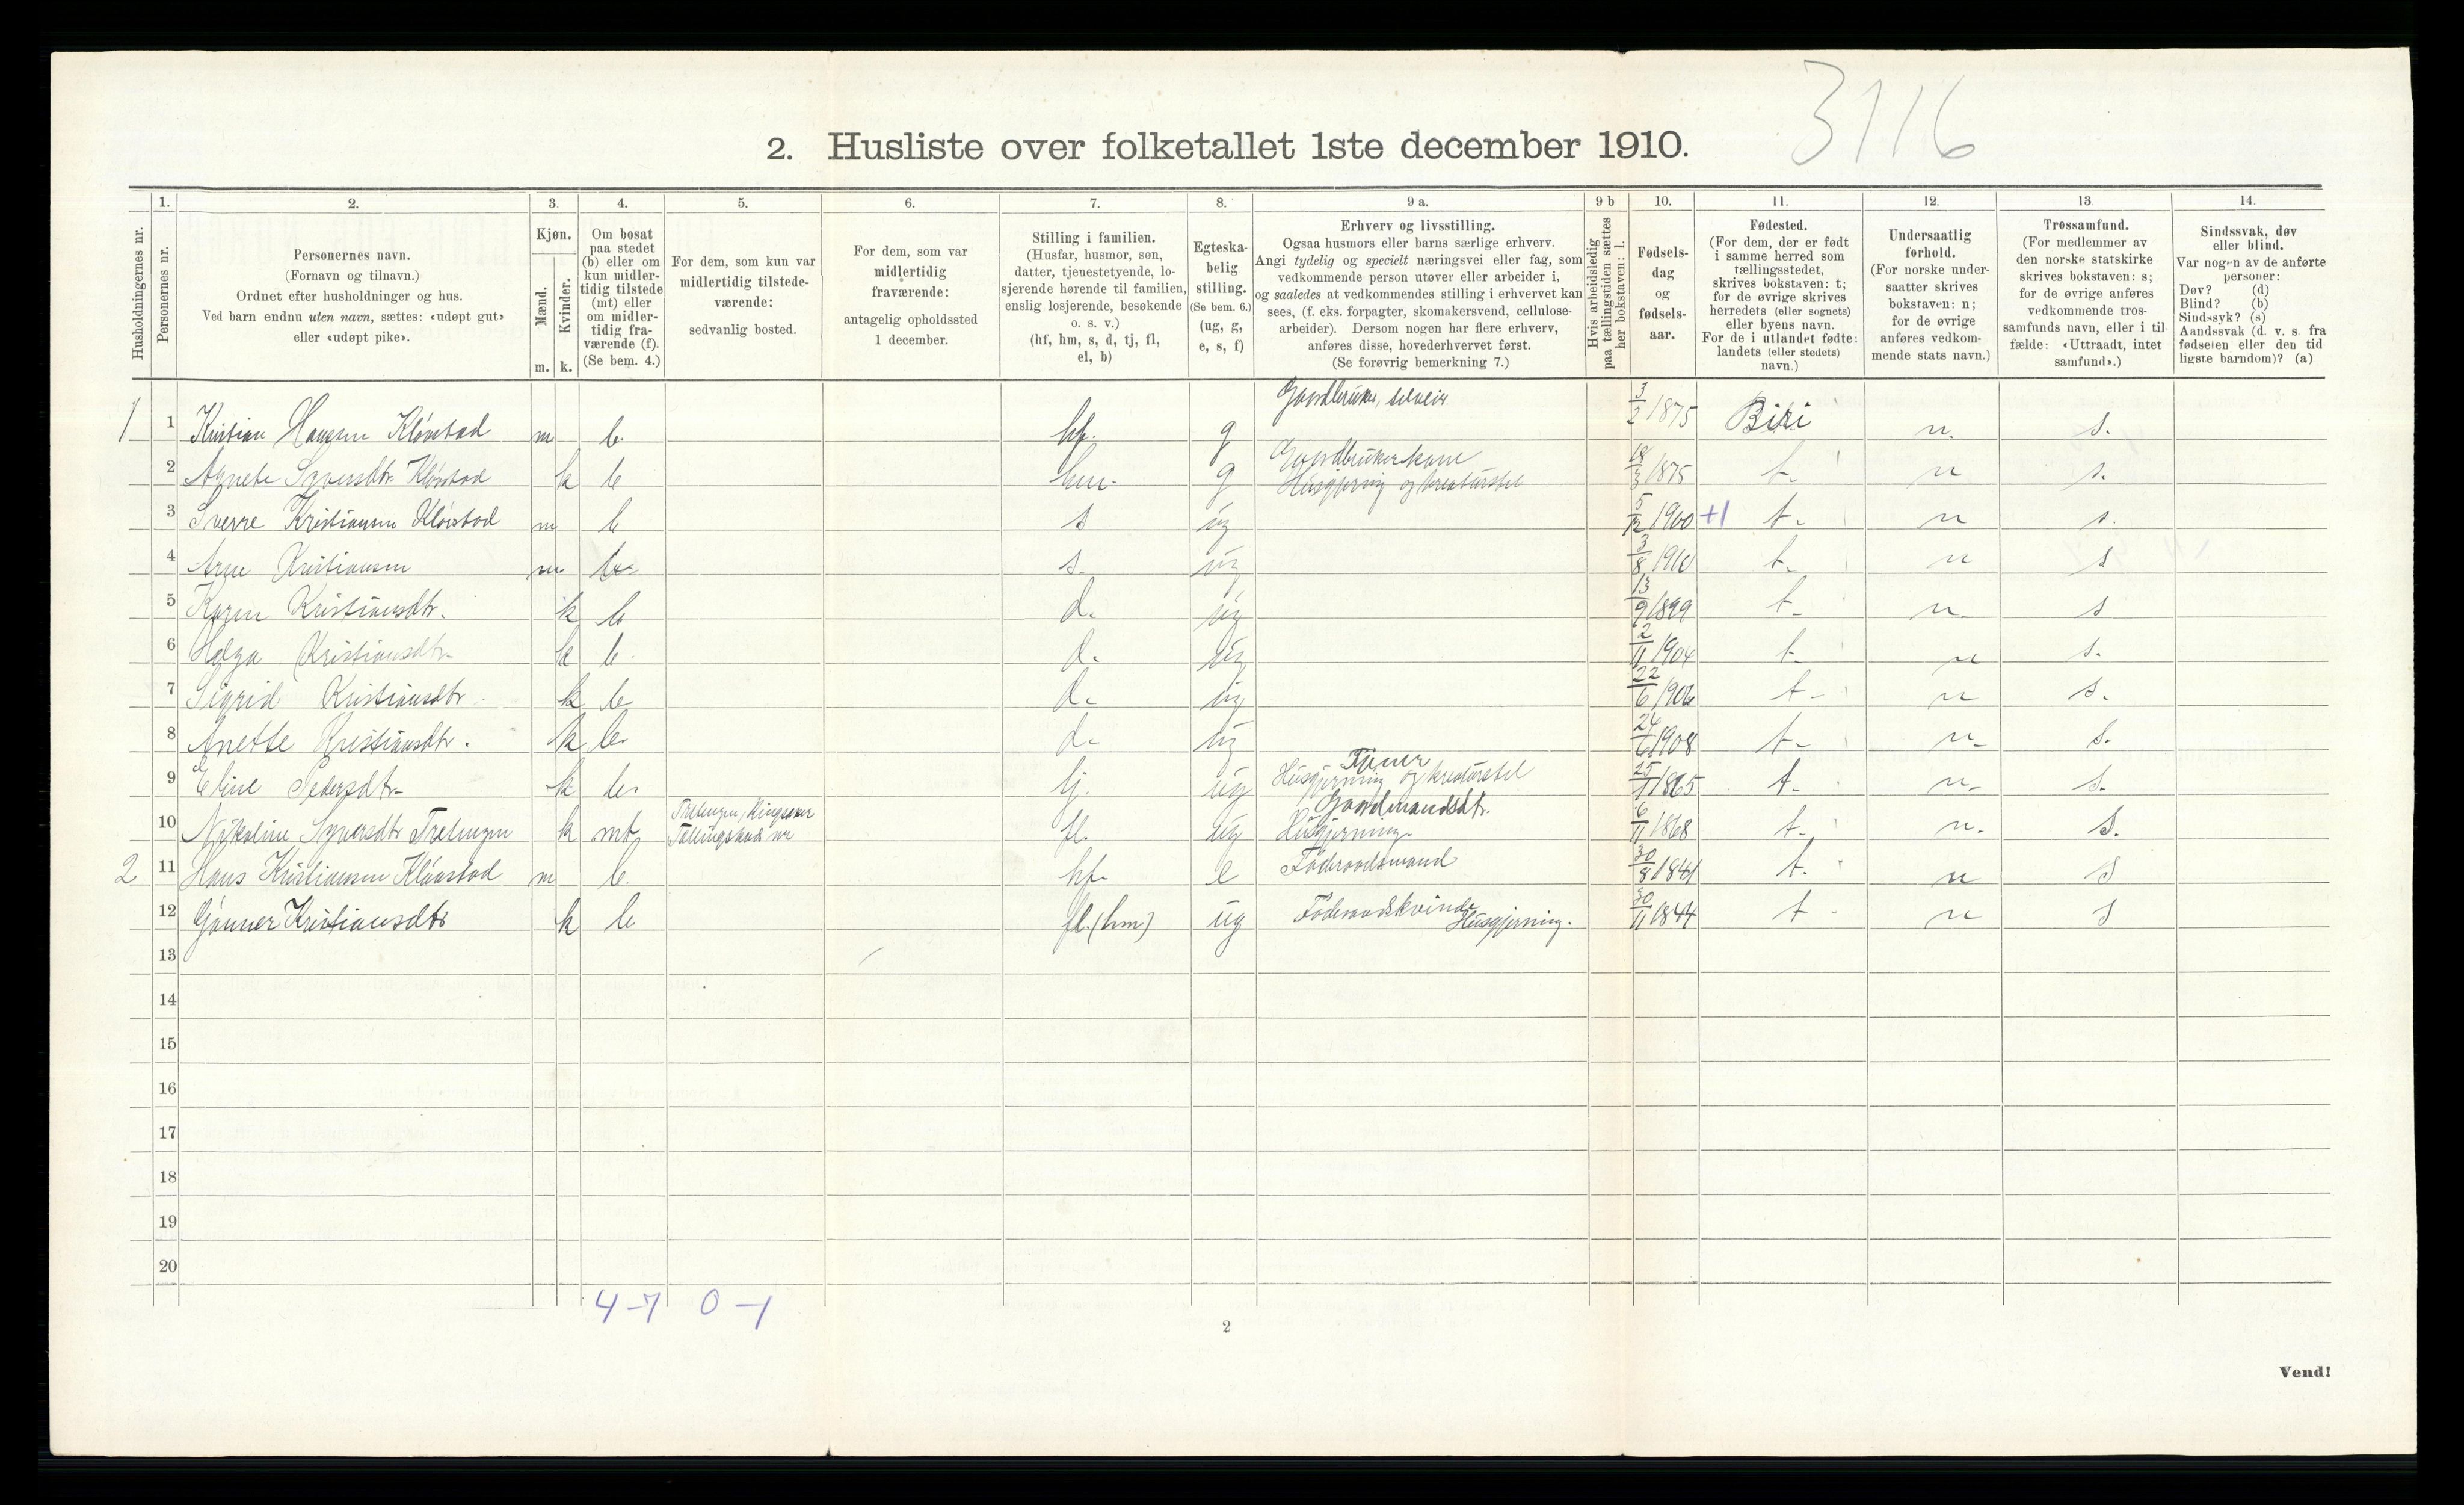 3116
2. Husliste over folketallet 1ste december 1910.
Husholdningernes nr.
1.
Personernes nr.
2.
Personernes navn.
(Fornavn og tilnavn.)
Ordnet efter husholdninger og hus.
Ved barn endnu uten navn, sættes: «udøpt gut»
eller «udøpt pike».
3.
Kjøn.
Mænd.
Kvinder.
m. k.
4.
Om bosat
paa stedet
(b) eller om
kun midler-
tidig tilstede
(mt) eller
om midler-
tidig fra-
værende (f).
(Se bem. 4.)
5.
For dem, som kun var
midlertidig tilstede-
værende:
sedvanlig bosted.
6.
For dem, som var
midlertidig
fraværende:
antagelig opholdssted
1 december.
7.
Stilling i familien.
(Husfar, husmor, søn,
datter, tjenestetyende, lo-
sjerende hørende til familien,
enslig losjerende, besøkende
o. s. v.)
(hf, hm, s, d, tj, fl,
el, b)
8.
Egteska-
belig
stilling.
(Se bem. 6.)
(ug, g,
e, s, f)
9 a.
Erhverv og livsstilling.
Ogsaa husmors eller barns særlige erhverv.
Angi tydelig og specielt næringsvei eller fag, som
vedkommende person utøver eller arbeider i,
og saaledes at vedkommendes stilling i erhvervet kan
sees, (f. eks. forpagter, skomakersvend, cellulose-
arbeider). Dersom nogen har flere erhverv,
anføres disse, hovederhvervet først.
(Se forøvrig bemerkning 7.)
9 b
Hvis arbeidsledig
paa tællingstiden sættes
her bokstaven: l.
10.
Fødsels-
dag
og
fødsels-
aar.
11.
Fødested.
(For dem, der er født
i samme herred som
tællingsstedet,
skrives bokstaven: t;
for de øvrige skrives
herredets (eller sognets)
eller byens navn.
For de i utlandet fødte:
landets (eller stedets)
navn.)
12.
Undersaatlig
forhold.
(For norske under-
saatter skrives
bokstaven: n;
for de øvrige
anføres vedkom-
mende stats navn.)
13
Trossamfund.
(For medlemmer av
den norske statskirke
skrives bokstaven: s;
for de øvrige anføres
vedkommende tros-
samfunds navn, eller i til-
fælde: «Uttraadt, intet
samfund».)
14.
Sindssvak, døv
eller blind.
Var nogen av de anførte
personer:
Døv? (d)
Blind? (b)
Sindssyk? (s)
Aandssvak (d. v. s. fra
fødselen eller den tid-
ligste barndom)? (a)
1 1 Kristian Hansen Kløvstad m b. hf. g Gaardbruker, selveier 3/2 1875 Biri n. s.
2 Agnete Syversdtr. Kløvstad k b hm. g Gaardbrukerkone Husgjerning og kreaturstel 18/3 1875 t. n s.
3 Sverre Kristiansen Kløvstad m b s ug 5/12 1900 +1 t. n s.
4 Arne Kristiansen m b s. ug 3/8 1910 t. n s
5 Karen Kristiansdtr. k b d. ug 13/9 1899 t. n s
6 Helga Kristiansdtr. k b. d. ug 2/11 1904 t. n s.
7 Sigrid Kristiansdtr. k b d. ug 22/6 1906 t. n s.
8 Anette Kristiansdtr. k b. d. ug 24/6 1908 t. n. s.
9 Eline Pedersdtr. k b. tj. ug Husgjerning og kreaturstel 25/1 1865 t. n. s.
10 Nikoline Syversdtr k mt fl. ug Gaardmandsdtr. Husgjerning. 6/11 1868 t. n. s.
2 11 Hans Kristiansen Kløvstad m b. hf. e Føderaadsmand 30/8 1841 t. n s
12 Gunner Kristiansdtr k b fl. (hm) ug Føderaadskvinde Husgjerning. 30/11 1844 t. n s
13
14
15
16
17
18
19
20
4-7 0-1
2
Vend!